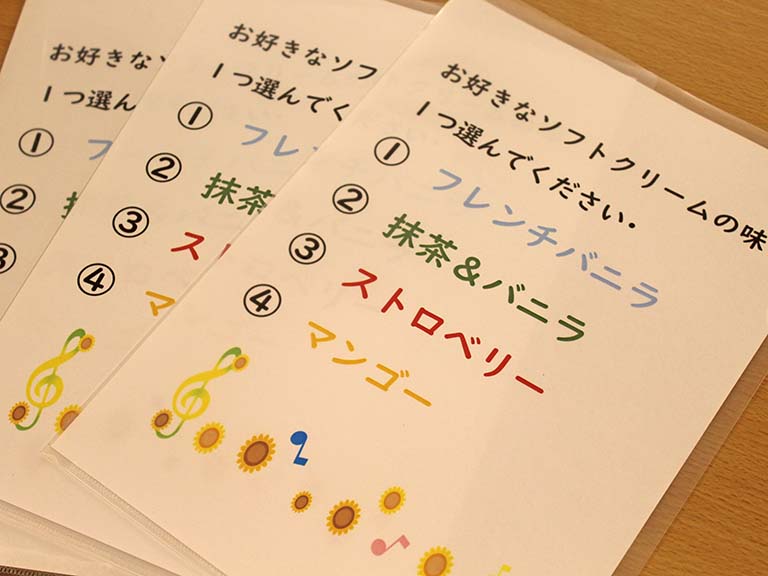 お好きなソフトクリームの味
1つ選んでください・
① フレンチバニラ
② 抹茶&バニラ
③ ストロベリー
④ マンゴー
お好きなソフ
1つ選んでく
① フレン
② 抹茶
③ スト
④ マ
お好きな
1つ選ん
① フ
②
③